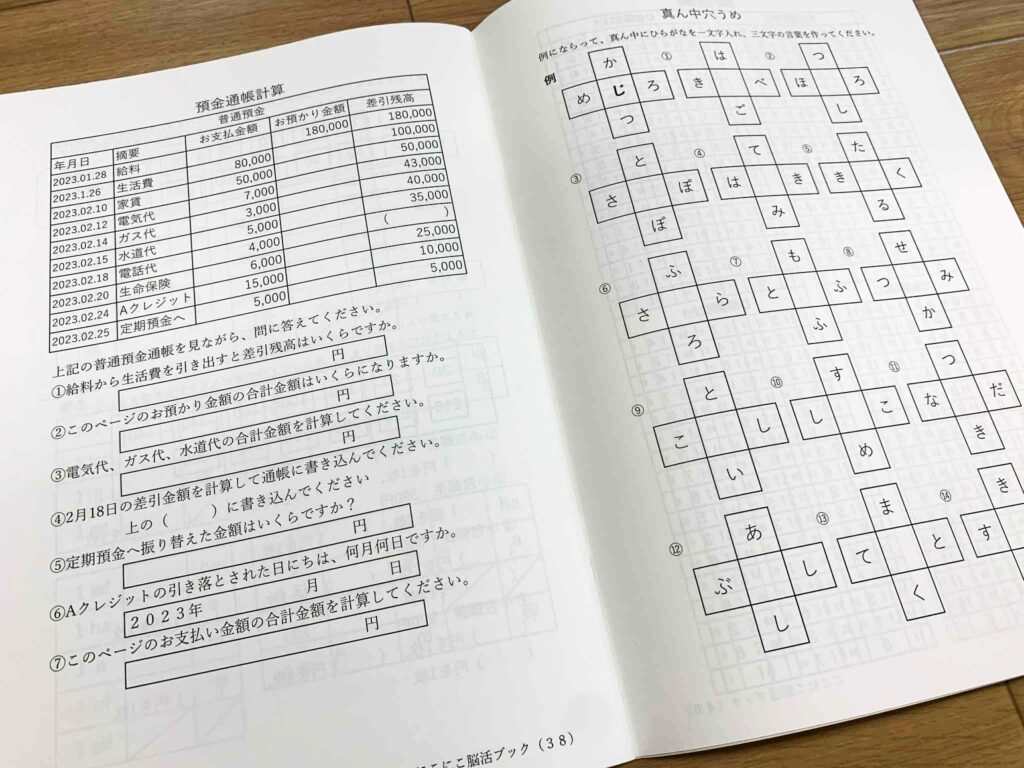 預金通帳計算
普通預金
年月日 摘要 お支払金額 お預かり金額 差引残高
2023.01.28 給料 180,000 180,000
2023.1.26 生活費 80,000 100,000
2023.02.10 家賃 50,000 50,000
2023.02.12 電気代 7,000 43,000
2023.02.14 ガス代 3,000 40,000
2023.02.15 水道代 5,000 35,000
2023.02.18 電話代 4,000 ( )
2023.02.20 生命保険 6,000 25,000
2023.02.24 Aクレジット 15,000 10,000
2023.02.25 定期預金へ 5,000 5,000
上記の普通預金通帳を見ながら、問に答えてください。
①給料から生活費を引き出すと差引残高はいくらですか。
円
②このページのお預かり金額の合計金額はいくらになりますか。
円
③電気代、ガス代、水道代の合計金額を計算してください。
円
④2月18日の差引金額を計算して通帳に書き込んでください。
上の( )に書き込んでください
⑤定期預金へ振り替えた金額はいくらですか？
円
⑥Aクレジットの引き落とされた日にちは、何月何日ですか。
2023年 月 日
⑦このページのお支払い金額の合計金額を計算してください。
円
にこにこ脳活ブック（38）
真ん中穴うめ
例にならって、真ん中にひらがなを一文字入れ、三文字の言葉を作ってください。
例 か ① は ② つ
め じ ろ き べ ほ ろ
つ ご し
③ と ④ て ⑤ た
さ ぽ は き き く
ぼ み る
⑥ ふ ⑦ も ⑧ せ
さ ら と ふ つ み
ろ ふ か
⑨ と ⑩ す ⑪ つ
こ し し こ な だ
い め き
⑫ あ ⑬ ま ⑭ き
ぶ し て と す
し く